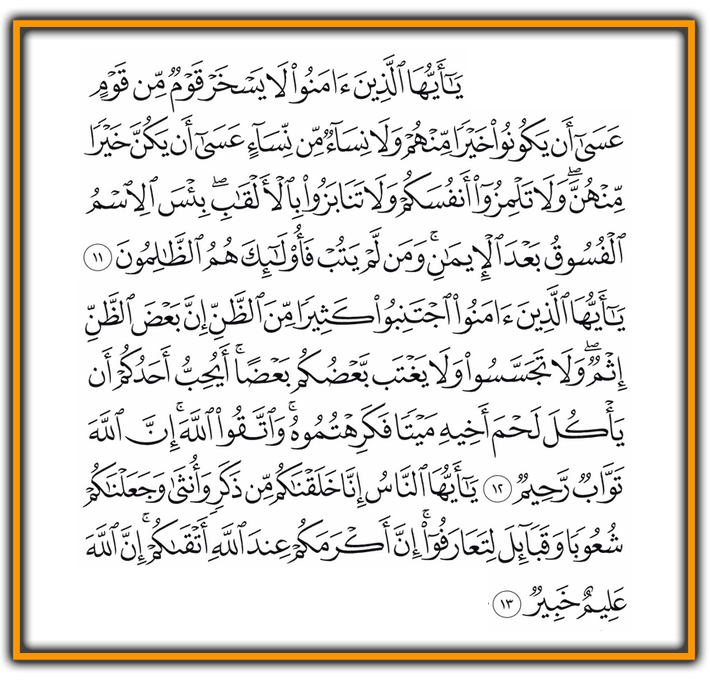 يَٰٓأَيُّهَا ٱلَّذِينَ ءَامَنُوا۟ لَا يَسْخَرْ قَوْمٌ مِّن قَوْمٍ
عَسَىٰٓ أَن يَكُونُوا۟ خَيْرًا مِّنْهُمْ وَلَا نِسَآءٌ مِّن نِّسَآءٍ عَسَىٰٓ أَن يَكُنَّ خَيْرًا
مِّنْهُنَّ ۖ وَلَا تَلْمِزُوٓا۟ أَنفُسَكُمْ وَلَا تَنَابَزُوا۟ بِٱلْأَلْقَٰبِ ۖ بِئْسَ ٱلِٱسْمُ
ٱلْفُسُوقُ بَعْدَ ٱلْإِيمَٰنِ ۚ وَمَن لَّمْ يَتُبْ فَأُو۟لَٰٓئِكَ هُمُ ٱلظَّٰلِمُونَ ١١
يَٰٓأَيُّهَا ٱلَّذِينَ ءَامَنُوا۟ ٱجْتَنِبُوا۟ كَثِيرًا مِّنَ ٱلظَّنِّ إِنَّ بَعْضَ ٱلظَّنِّ
إِثْمٌ ۖ وَلَا تَجَسَّسُوا۟ وَلَا يَغْتَب بَّعْضُكُم بَعْضًا ۚ أَيُحِبُّ أَحَدُكُمْ أَن
يَأْكُلَ لَحْمَ أَخِيهِ مَيْتًا فَكَرِهْتُمُوهُ ۚ وَٱتَّقُوا۟ ٱللَّهَ ۚ إِنَّ ٱللَّهَ
تَوَّابٌ رَّحِيمٌ ١٢ يَٰٓأَيُّهَا ٱلنَّاسُ إِنَّا خَلَقْنَٰكُم مِّن ذَكَرٍ وَأُنثَىٰ وَجَعَلْنَٰكُمْ
شُعُوبًا وَقَبَآئِلَ لِتَعَارَفُوٓا۟ ۚ إِنَّ أَكْرَمَكُمْ عِندَ ٱللَّهِ أَتْقَىٰكُمْ ۚ إِنَّ ٱللَّهَ
عَلِيمٌ خَبِيرٌ ١٣